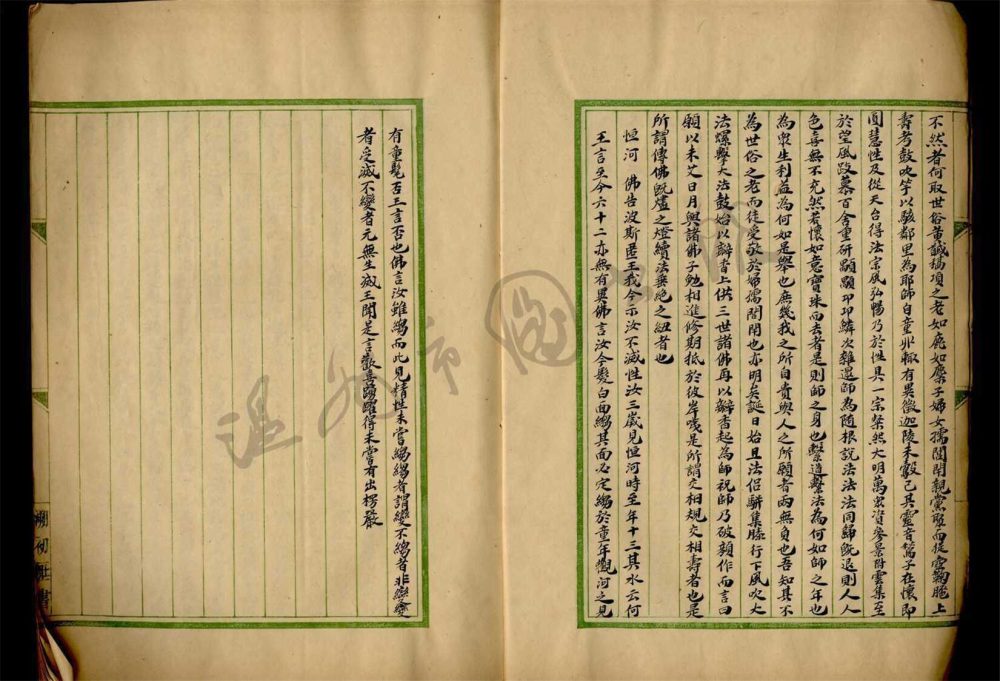 不然者何取世俗黄馘槁項之老如鹿如麋子婦女孺閨閈親黨聚而從臾鞠䠆上
壽考鼓吹竽以駭鄰里為耶師自童丱輙有異徵迦陵未鷇已具靈音鶖子在懷即
圓慧性及從天台得法宗風弘暢乃於性具一宗粲然大明萬衆資參景附雲集至
於望風跂慕百舍重研顒顒卬卬鱗次雜遝師為随根說法法法同歸既退則人人
色喜無不充然若懷如意寶珠而去者是則師之身也繫道繫法為何如師之年也
為衆生利益為何如是舉也庶幾我之所自貴與人之所願者兩無負也吾知其不
為世俗之老而徒受敬於婦孺閭閈也亦明矣誕日始旦法侶駢集膝行下風吹大
法螺擊大法鼓始以瓣香上供三世諸佛再以瓣香起為師祝師乃破顏作而言曰
願以未艾日月與諸佛子勉相進修期抵於彼岸噫是所謂交相規交相壽者也是
所謂傳佛既燼之燈續法垂絶之紐者也
恒河 佛告波斯匿王我今示汝不滅性汝三歲見恒河時至年十三其水云何
王言至今六十二亦無有異佛言汝今髮白面縐其面必定縐於童年觀河之見
有童耄否王言否也佛言汝雖縐而此見精性未嘗縐縐者謂變不縐者非變變
者受滅不變者元無生滅王聞是言歡喜踴躍得未嘗有出楞嚴
温州市圖